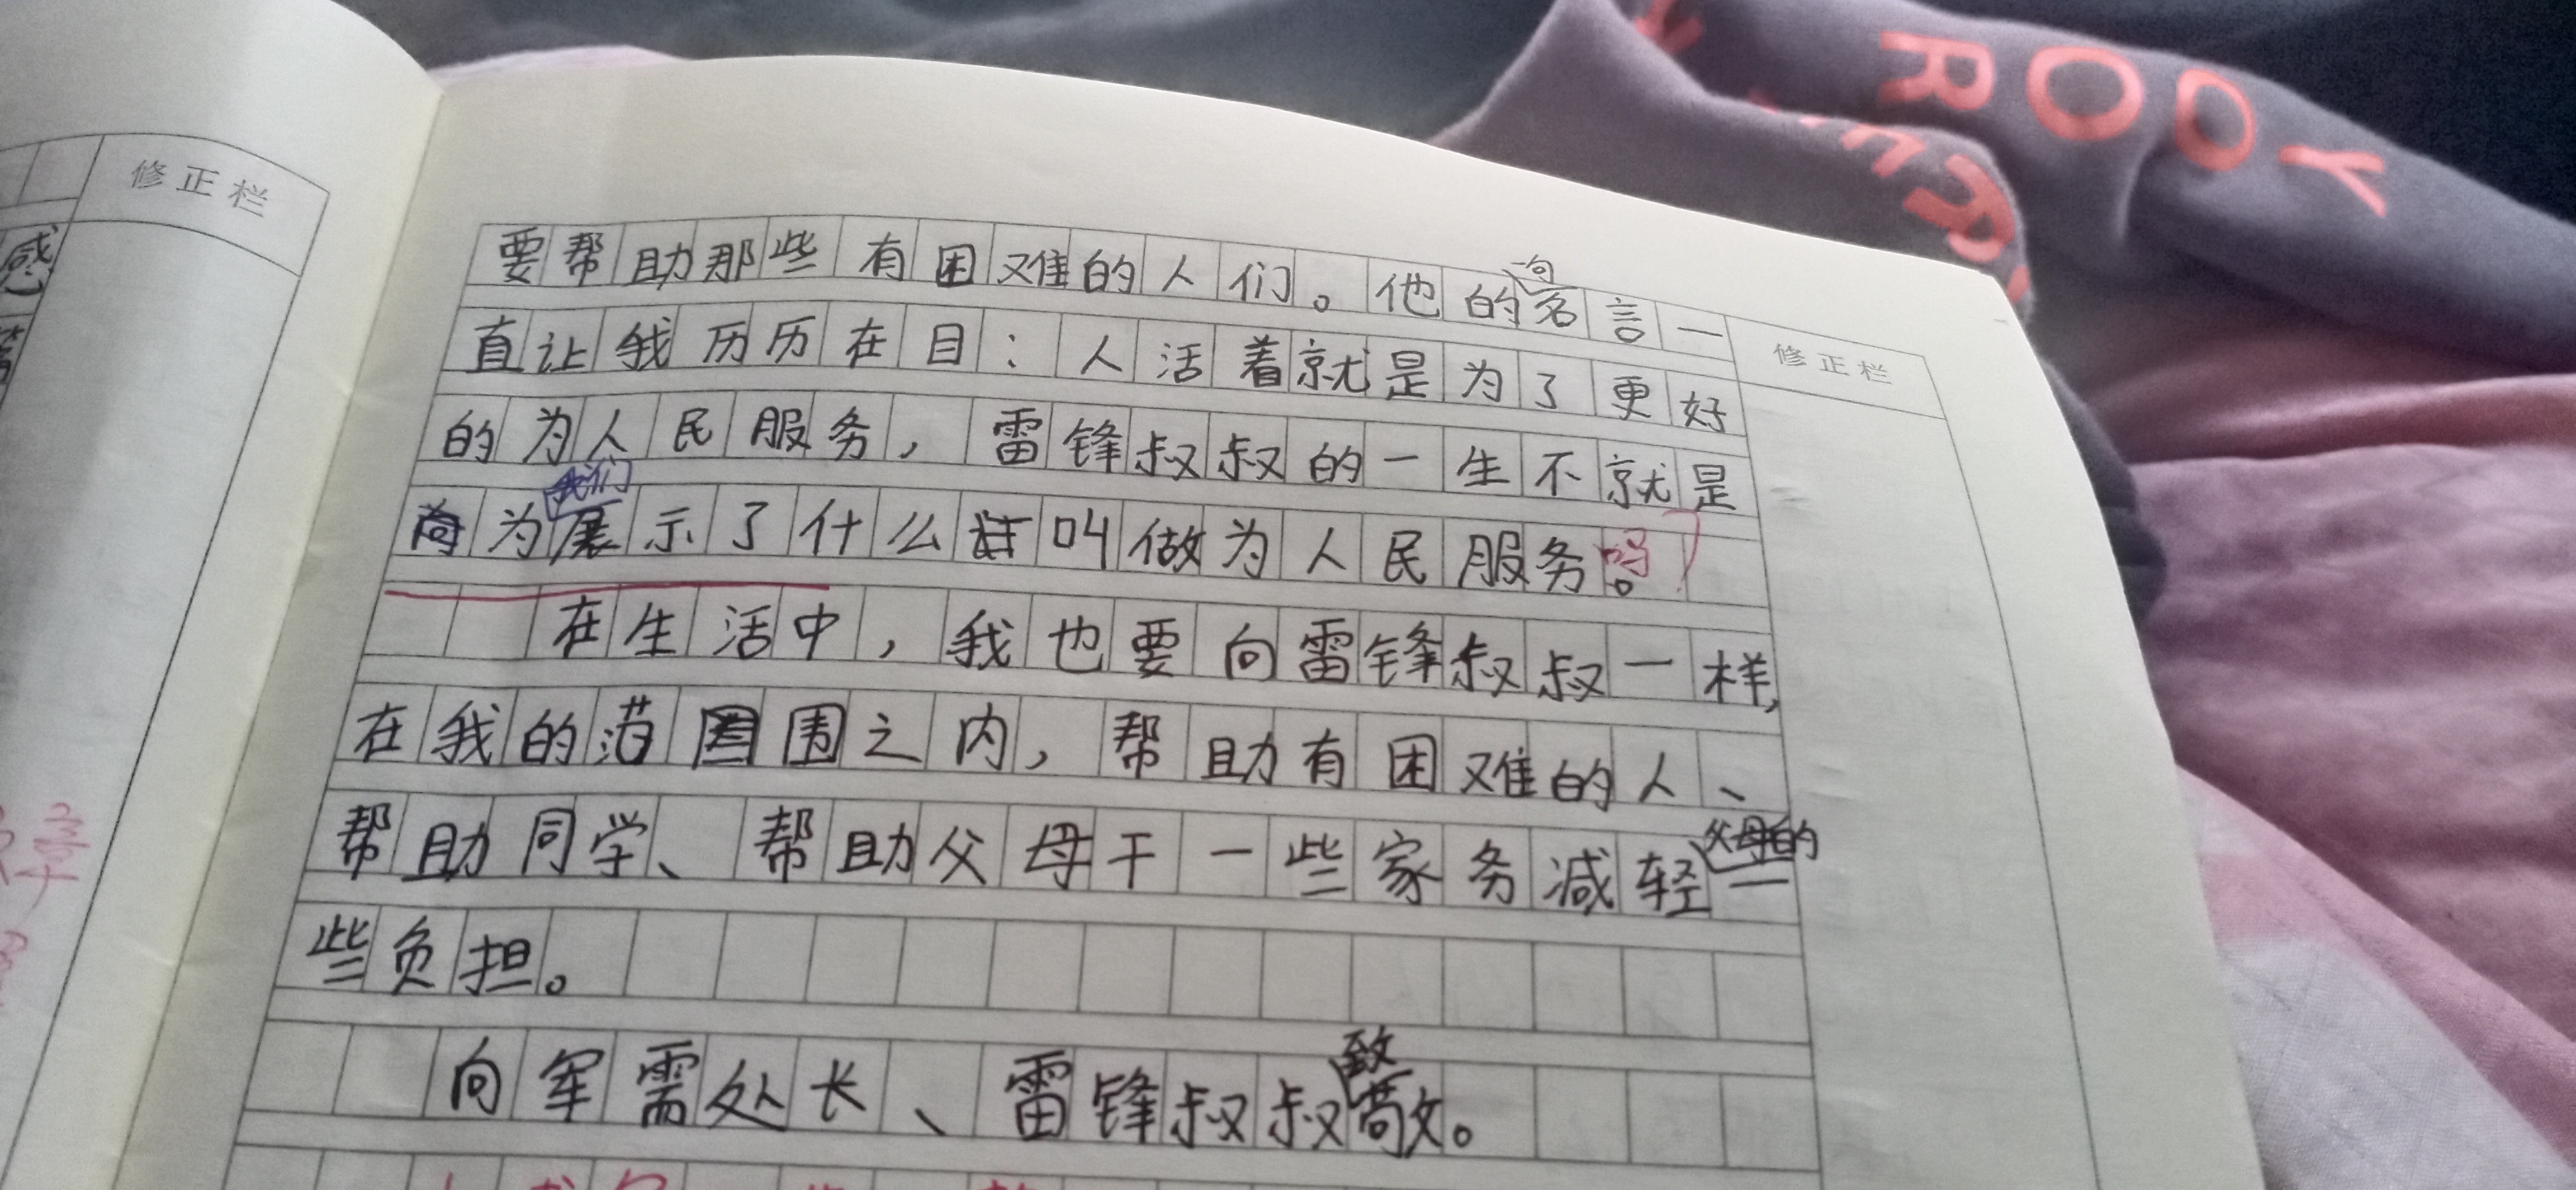 修正栏
感
要帮助那些有困难的人们。他的一句名言一
直让我历历在目：人活着就是为了更好
的为人民服务，雷锋叔叔的一生不就是
为我们展示了什么叫做为人民服务吗？
在生活中，我也要向雷锋叔叔一样，
在我的范围之内，帮助有困难的人、
帮助同学、帮助父母干一些家务减轻父母的一
些负担。
向军需处长、雷锋叔叔致敬。
修正栏
章
ROOY